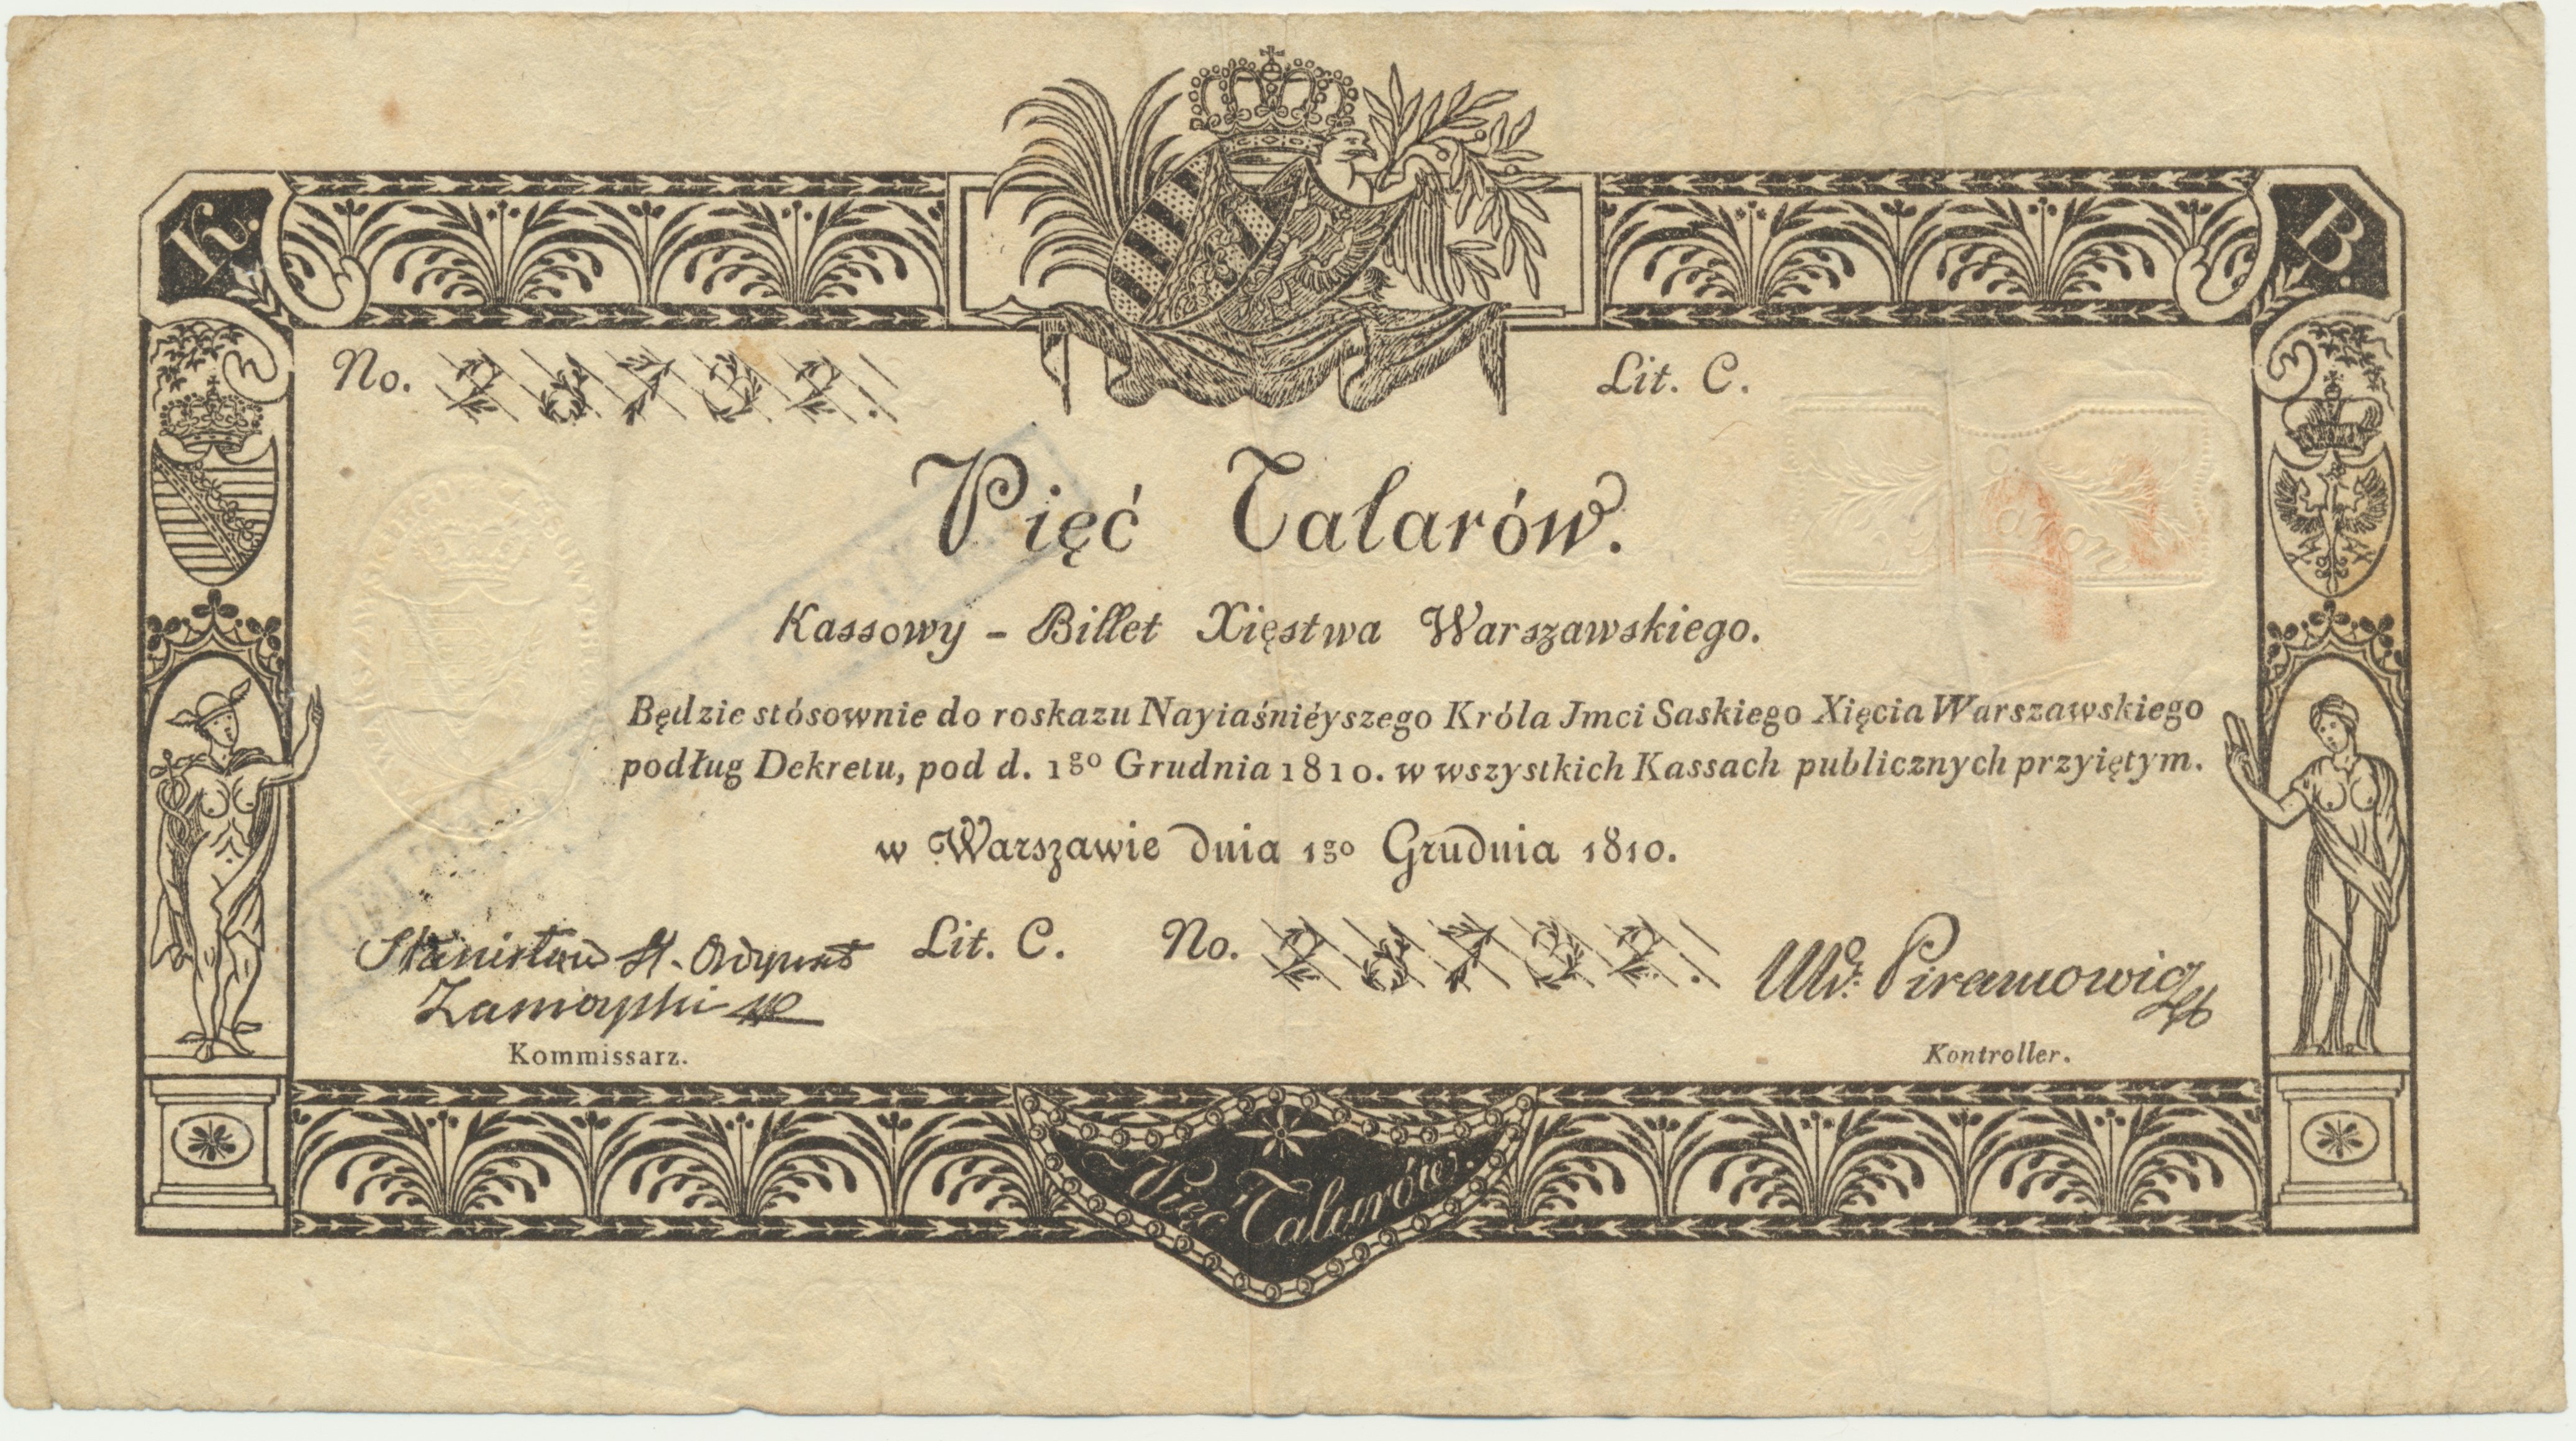 K. B.
No. Lit. C.
Pięć Talarów.
Kassowy - Billet Xięstwa Warszawskiego.
Będzie stósownie do roskazu Nayiaśniéyszego Króla Jmci Saskiego Xięcia Warszawskiego
podług Dekretu, pod d. 1go Grudnia 1810. w wszystkich Kassach publicznych przyiętym.
w Warszawie dnia 1go Grudnia 1810.
Stanisław Ordynat Lit. C. No. Piramowicz
Zamoyski
Kommissarz. Kontroller.
Pięć Talarów.